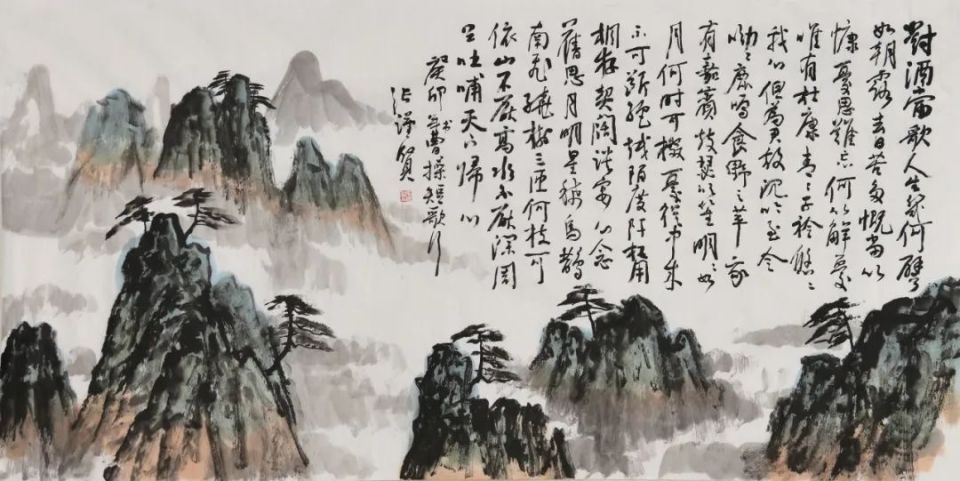 對酒當歌人生幾何譬
如朝露去日苦多慨當以
慷憂思難忘何以解憂
唯有杜康青〻子衿悠〻
我心但為君故沉吟至今
呦〻鹿鳴食野之苹我
有嘉賓鼓瑟吹笙明〻如
月何時可掇憂從中來
不可斷絕越陌度阡枉用
相存契闊談宴心念
舊恩月明星稀烏鵲
南飛繞樹三匝何枝可
依山不厭高水不厭深周
公吐哺天下歸心
癸卯年书曹操短歌行
张